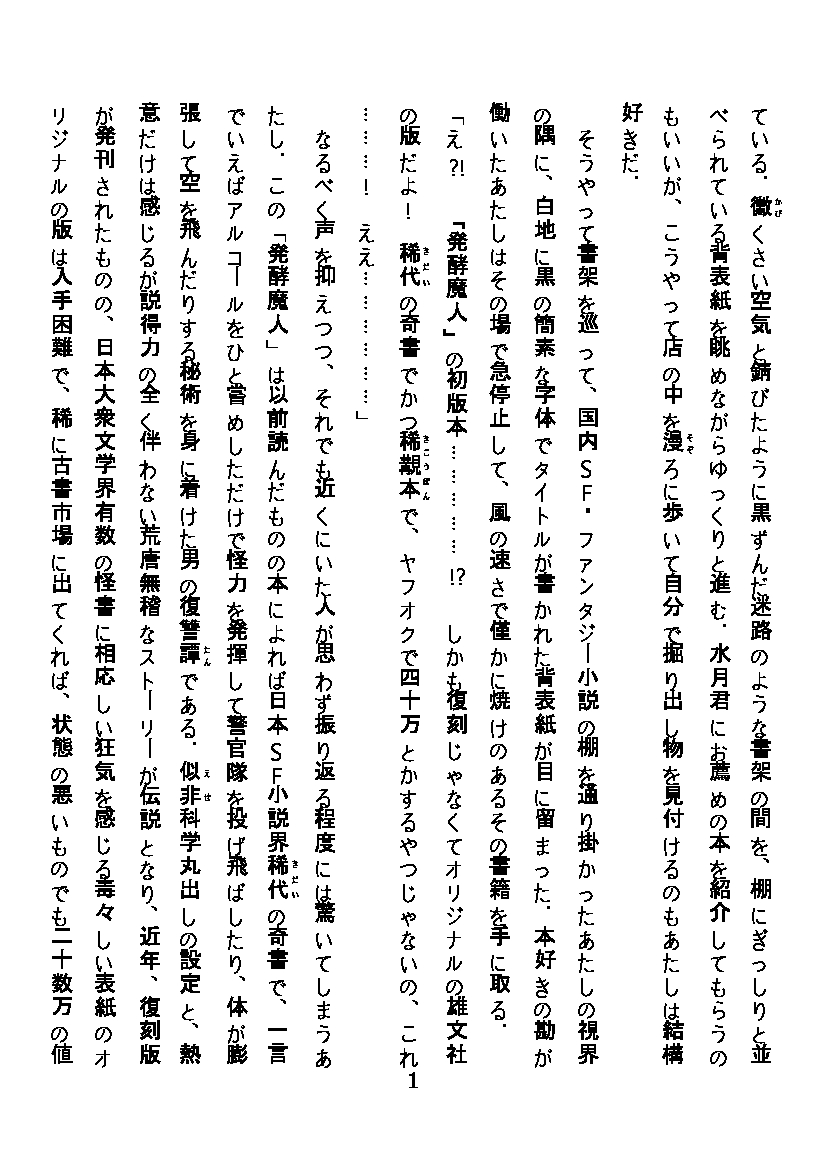 ている．黴くさい空気と錆びたように黒ずんだ迷路のような書架の間を、棚にぎっしりと並
べられている背表紙を眺めながらゆっくりと進む．水月君にお薦めの本を紹介してもらうの
もいいが、こうやって店の中を漫ろに歩いて自分で掘り出し物を見付けるのもあたしは結構
好きだ．
そうやって書架を巡って、国内ＳＦ・ファンタジー小説の棚を通り掛かったあたしの視界
の隅に、白地に黒の簡素な字体でタイトルが書かれた背表紙が目に留まった．本好きの勘が
働いたあたしはその場で急停止して、風の速さで僅かに焼けのあるその書籍を手に取る．
「え?!　「発酵魔人」の初版本……………!?　しかも復刻じゃなくてオリジナルの雄文社
の版だよ！稀代の奇書でかつ稀覯本で、ヤフオクで四十万とかするやつじゃないの、これ
……！　ええ………………」
なるべく声を抑えつつ、それでも近くにいた人が思わず振り返る程度には驚いてしまうあ
たし．この「発酵魔人」は以前読んだものの本によれば日本ＳＦ小説界稀代の奇書で、一言
でいえばアルコールをひと嘗めしただけで怪力を発揮して警官隊を投げ飛ばしたり、体が膨
張して空を飛んだりする秘術を身に着けた男の復讐譚である．似非科学丸出しの設定と、熱
意だけは感じるが説得力の全く伴わない荒唐無稽なストーリーが伝説となり、近年、復刻版
が発刊されたものの、日本大衆文学界有数の怪書に相応しい狂気を感じる毒々しい表紙のオ
リジナルの版は入手困難で、稀に古書市場に出てくれば、状態の悪いものでも二十数万の値
1